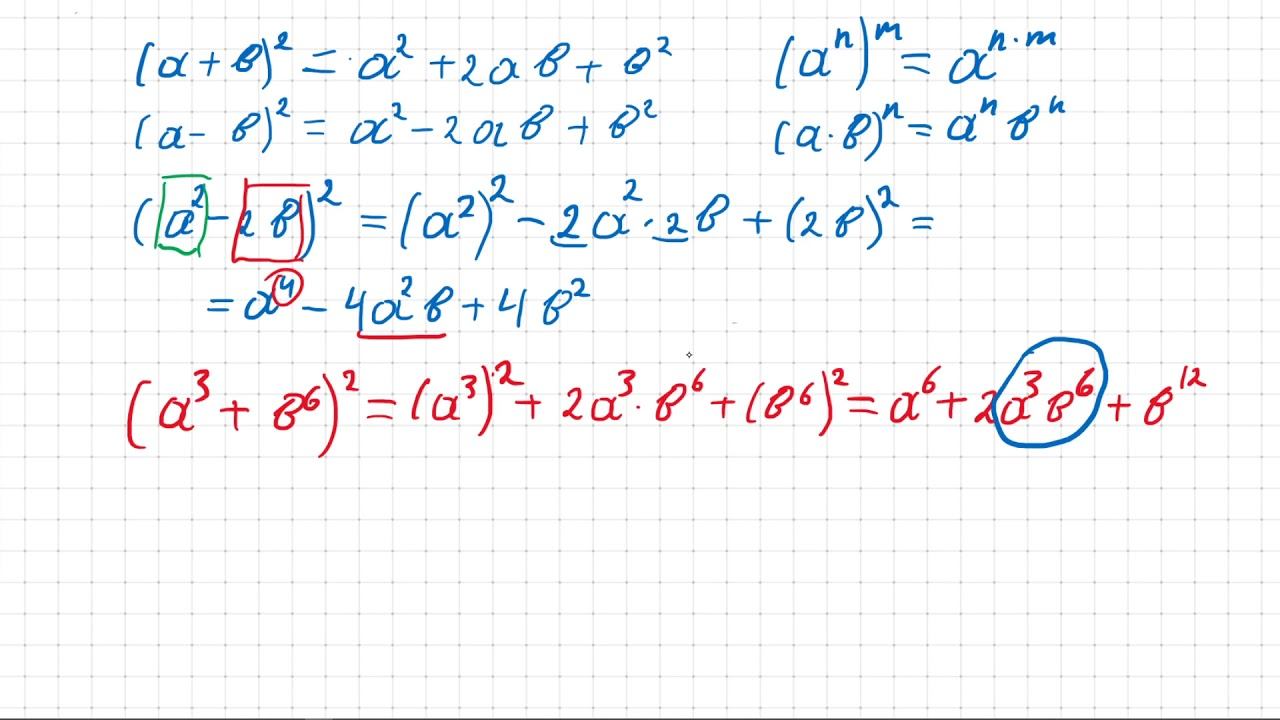 (a + b)² = a² + 2ab + b²
(aⁿ)ᵐ = aⁿ·ᵐ
(a - b)² = a² - 2ab + b²
(a·b)ⁿ = aⁿbⁿ
(a² - 2b)² = (a²)² - 2a²·2b + (2b)² =
= a⁴ - 4a²b + 4b²
(a³ + b⁶)² = (a³)² + 2a³·b⁶ + (b⁶)² = a⁶ + 2a³b⁶ + b¹²